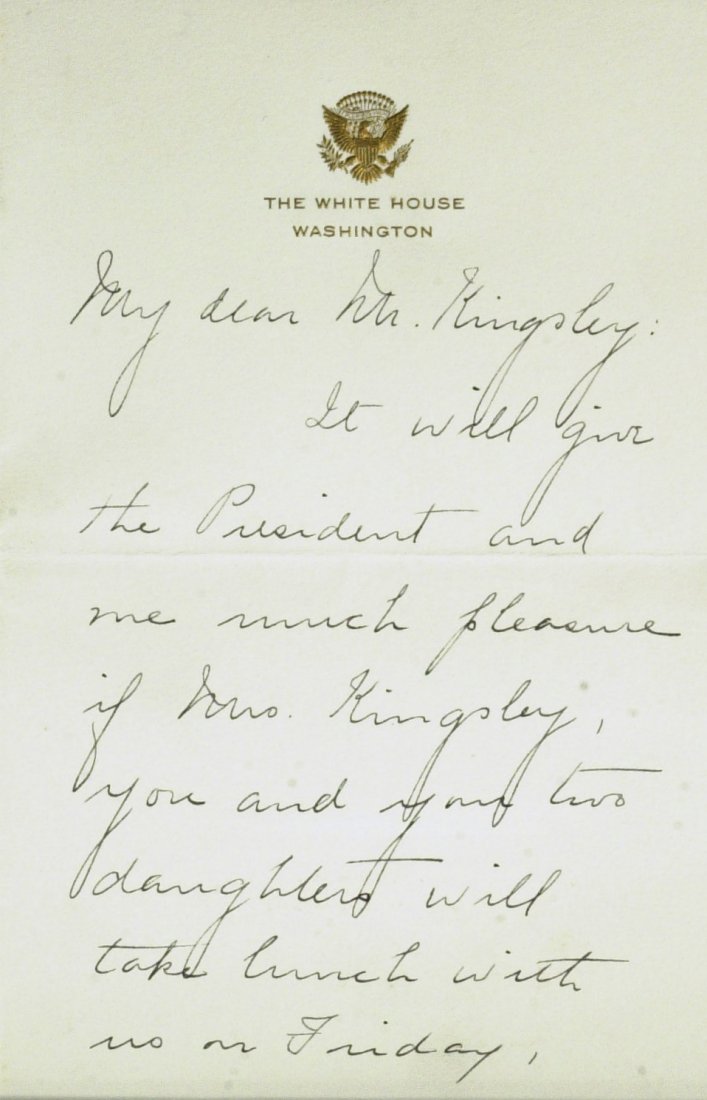 THE WHITE HOUSE
WASHINGTON
My dear Mr. Kingsley:
It will give
the President and
me much pleasure
if Mrs. Kingsley,
you and your two
daughters will
take lunch with
us on Friday,